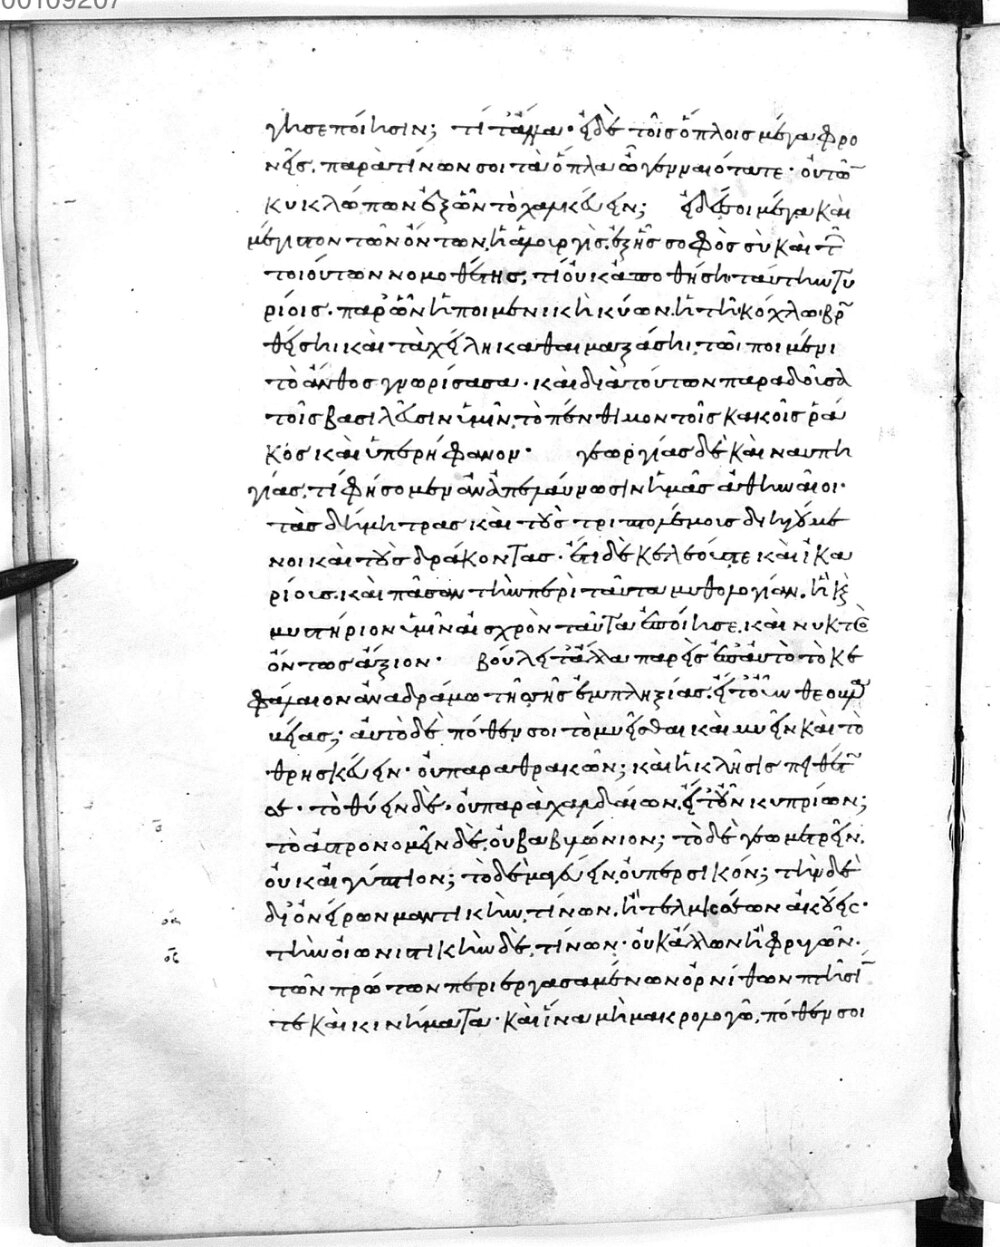 00109207
γησεποίησιν; τί τἄλλα· εἰ δὲ τοῖς ὅπλοις μέγα φρο
νεῖς. παρὰ τίνων σοι τὰ ὅπλα ὦ γενναιότατε· οὐ τῶν
κυκλώπων ἐξ ὧν τὸ χαλκεύειν; εἰ δέ σοι μέγα καὶ
μέγιστον τῶν ὄντων, ἡ ἁλουργὶς. ἐξ ἧς σοφὸς σὺ καὶ τῶν
τοιούτων νομοθέτης, τί οὐκ ἀποθήσῃ ταύτην τυ
ρίοις. παρ' ὧν ἡ ποιμενικὴ κύων. ἡ τὴν κόχλον βρω
θείσῃ καὶ τὰ χείλη καθαιμαξάσῃ, τῶι ποιμένι
τὸ ἄνθος γνωρίσασα. καὶ διὰ τούτων παραδοῦσα
τοῖς βασιλεῦσιν ὑμῖν, τὸ πένθιμον τοῖς κακοῖς ῥά
κος καὶ ὑπερήφανον· γεωργίας δὲ καὶ ναυπη
γίας, τί φήσομεν ἂν ἀπελαύνωσιν ἡμᾶς ἀθηναῖοι·
τὰς δήμητρας καὶ τοὺς τριπτολέμοις διηγούμε
νοι καὶ τοὺς δράκοντας. ἔτι δὲ κελεούς τε καὶ ἰκα
ρίους. καὶ πᾶσαν τὴν περὶ ταῦτα μυθολογίαν. ἣ καὶ
μυστήριον ὑμῖν αἰσχρὸν ταῦτα ἐποίησε. καὶ νυκτὸς
ὄντως ἄξιον· βούλει τἄλλα παρεὶς ἐπ' αὐτὸ τὸ κε
φάλαιον ἀναδράμω τῆς σῆς ἐμπληξίας. εἴτ' οὖν θεουργ
κείας; αὐτὸ δὲ πόθεν σοι τὸ μυεῖσθαι καὶ μυεῖν καὶ τὸ
θρησκεύειν· οὐ παρὰ θρακῶν; καὶ ἡ κλῆσις πειθέτω
σε· τὸ θύειν δὲ, οὐ παρὰ χαλδαίων, εἴτ' οὖν κυπρίων;
τὸ ἀστρονομεῖν δὲ, οὐ βαβυλώνιον; τὸ δὲ γεωμετρεῖν,
οὐκ αἰγύπτιον; τὸ δὲ μαγεύειν, οὐ περσικόν; τὴν δὲ
δι' ὀνείρων μαντικὴν, τίνων, ἢ τελμισσέων ἀκούεις·
τὴν οἰωνιστικὴν δὲ, τίνων· οὐκ ἄλλων ἢ φρυγῶν·
τῶν πρώτων περιεργασαμένων ὀρνίθων πτῆσίν
τε καὶ κινήματα· καὶ ἵνα μὴ μακρολογῶ, πόθεν σοι